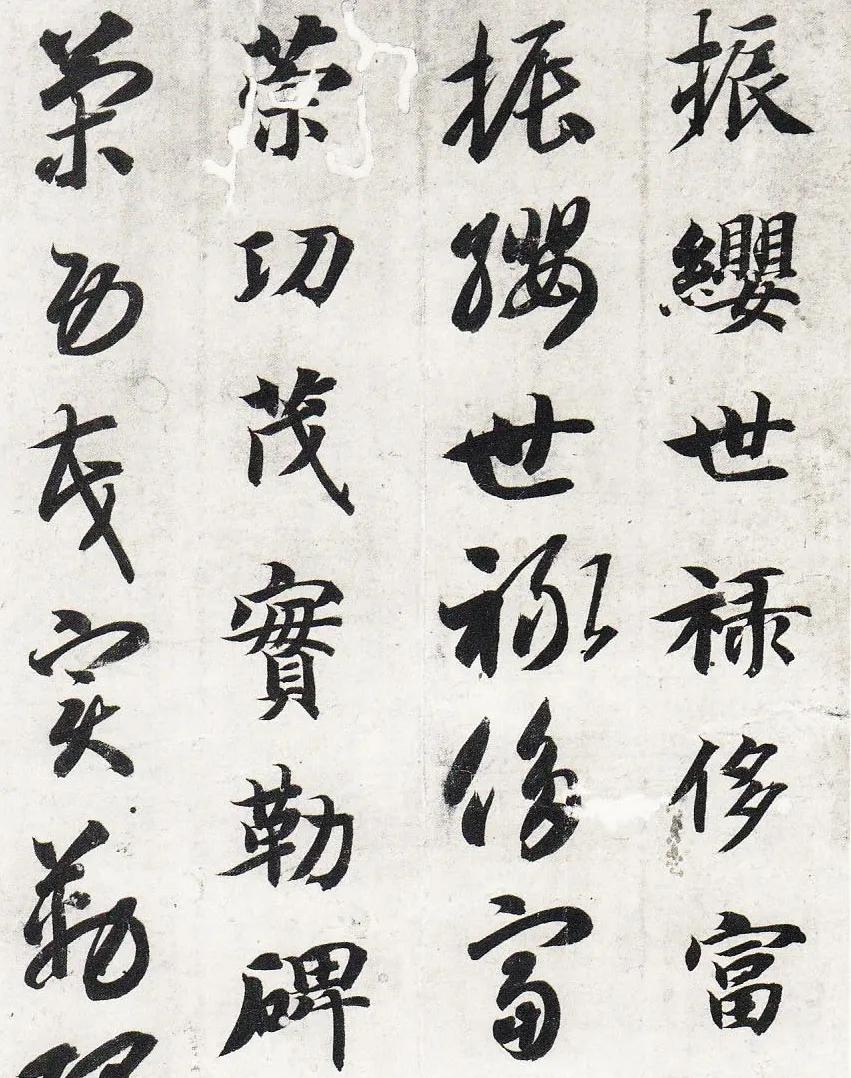 振纓世祿侈富
振纓世祿侈富
策功茂實勒碑
策功茂實勒